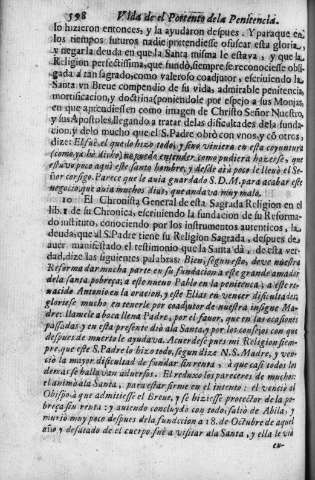 598 Vida de el Portento de la Penitencia.
lo hizieron entonces, y la ayudaron despues. Y paraque en
los tiempos futuros nadie pretendiesse ofuscar esta gloria,
y negarla deuda en que la Santa misma le estava, y que la
Religion perfectissima, que fundó, siempre se reconociesse obli-
gada à tan sagrado, como valeroso coadjutor, escriviendo la
Santa vn Breve compendio de su vida, admirable penitencia,
mortificacion, y doctrina (poniendole por espejo à sus Monjas,
en que aprendiessen como imagen de Christo Señor Nuestro,
y sus Apostoles, llegando à tratar delas dificultades dela funda-
cion, y delo mucho que el S. Padre obrò con vnos, y cõ otros,
dize: El fuè, el que lo hizo todo, y sino viniera en esta coyuntura
(como ya he dicho) no puedo entender como pudiera hazerse, que
estuvo poco aqui este santo hombre, y desde aì à poco le llevò el Se-
ñor consigo. Parece que le avia guardado S. D. M. para acabar este
negocio, que avia muchos dias, que andava muy malo.
10 El Chronista General de esta Sagrada Religion en el
lib. 1 de su Chronica, escriviendo la fundacion de su Reforma-
do instituto, conociendo por los instrumentos autenticos, la
deuda, que al S. Padre tiene su Religion Sagrada, despues de
auer manifestado el testimonio que la Santa dà, de esta ver-
dad, dize las siguientes palabras: Bien, segun esto, deve nuestra
Reforma dar mucha parte en su fundacion à este grande amador
de la santa pobreza; à este nuevo Pablo en la penitencia; à este re-
nacido Antonio en la oracion, y este Elias en vencer dificultades,
gloriese mucho, en tenerle por coadjutor de nuestra insigne Ma-
dre: llamele à boca llena Padre, por el favor, que en las ocasiones
passadas, y en esta presente diò ala Santa, y por los consejos con que
despues de muerto le ayudava. Acuerdese pues mi Religion siem-
pre, que este S. Padre lo hizo todo, segun dize N. S. Madre, y ven-
ciò la mayor dificultad de fundar sin renta, à que casi todos los
demas se hallavan adversos. El reduxo los pareceres de muchos:
el animò ala Santa, para estar firme en el intento: el venciò al
Obispo à que admitiesse el Breve, y se hiziesse protector de la po-
breça sin renta: y aviendo concluydo con todo, salio de Abila, y
murio muy poco despues dela fundacion à 18. de Octubre de aquel
año, y desatado de el cuerpo fuè à visitar ala Santa, y ella le viò
en-